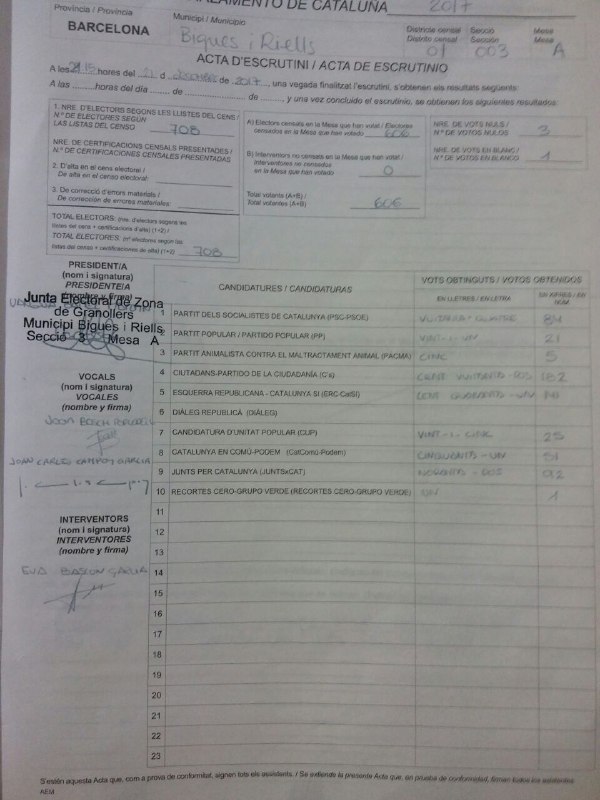 PARLAMENTO DE CATALUÑA 2017
Província / Provincia
BARCELONA
Municipi / Municipio
Bigues i Riells
Districte censal
Distrito censal
01
Secció
Sección
003
Mesa
Mesa
A
ACTA D'ESCRUTINI / ACTA DE ESCRUTINIO
A les 21:15 hores del 21 d desembre de 2017, una vegada finalitzat l'escrutini, s'obtenen els resultats següents:
A las ........horas del día ........ de .................... de ........., y una vez concluido el escrutinio, se obtienen los siguientes resultados:
1. NRE. D'ELECTORS SEGONS LES LLISTES DEL CENS /
N.º DE ELECTORES SEGÚN
LAS LISTAS DEL CENSO 708
NRE. DE CERTIFICACIONS CENSALS PRESENTADES /
N.º DE CERTIFICACIONES CENSALES PRESENTADAS
2. D'alta en el cens electoral /
De alta en el censo electoral:
3. De correcció d'errors materials /
De corrección de errores materiales:
TOTAL ELECTORS: (nre. d'electors segons les
llistes del cens + certificacions d'alta) (1+2) /
TOTAL ELECTORES: (nº electores según las
listas del censo + certificaciones de alta) (1+2) 708
A) Electors censats en la Mesa que han votat / Electores
censados en la Mesa que han votado 606
B) Interventors no censats en la Mesa que han votat /
Interventores no censados
en la Mesa que han votado 0
Total votants (A+B) /
Total votantes (A+B) 606
NRE. DE VOTS NULS /
N.º DE VOTOS NULOS 3
NRE. DE VOTS EN BLANC /
N.º DE VOTOS EN BLANCO 1
PRESIDENT/A
(nom i signatura)
PRESIDENTE/A
Junta Electoral de Zona
de Granollers
Municipi Bigues i Riells
Secció 3 Mesa A
VOCALS
(nom i signatura)
VOCALES
(nombre y firma)
JOAN CARLES CAMPOY GARCIA
INTERVENTORS
(nom i signatura)
INTERVENTORES
(nombre y firma)
EVA GARCIA
CANDIDATURES / CANDIDATURAS
VOTS OBTINGUTS / VOTOS OBTENIDOS
EN LLETRES / EN LETRA
EN XIFRES / EN NÚM.
1 PARTIT DELS SOCIALISTES DE CATALUNYA (PSC-PSOE) VUITANTA-QUATRE 84
2 PARTIT POPULAR / PARTIDO POPULAR (PP) VINT-I-UN 21
3 PARTIT ANIMALISTA CONTRA EL MALTRACTAMENT ANIMAL (PACMA) CINC 5
4 CIUTADANS-PARTIDO DE LA CIUDADANÍA (C's) CENT VUITANTA-DOS 182
5 ESQUERRA REPUBLICANA - CATALUNYA SÍ (ERC-CatSÍ) CENT QUARANTA-UN 141
6 DIÀLEG REPUBLICÀ (DIÀLEG)
7 CANDIDATURA D'UNITAT POPULAR (CUP) VINT-I-CINC 25
8 CATALUNYA EN COMÚ-PODEM (CatComú-Podem) CINQUANTA-UN 51
9 JUNTS PER CATALUNYA (JUNTSxCAT) NORANTA-DOS 92
10 RECORTES CERO-GRUPO VERDE (RECORTES CERO-GRUPO VERDE) UN 1
11
12
13
14
15
16
17
18
19
20
21
22
23
S'estén aquesta Acta que, com a prova de conformitat, signen tots els assistents. / Se extiende la presente Acta que, en prueba de conformidad, firman todos los asistentes.
AEM